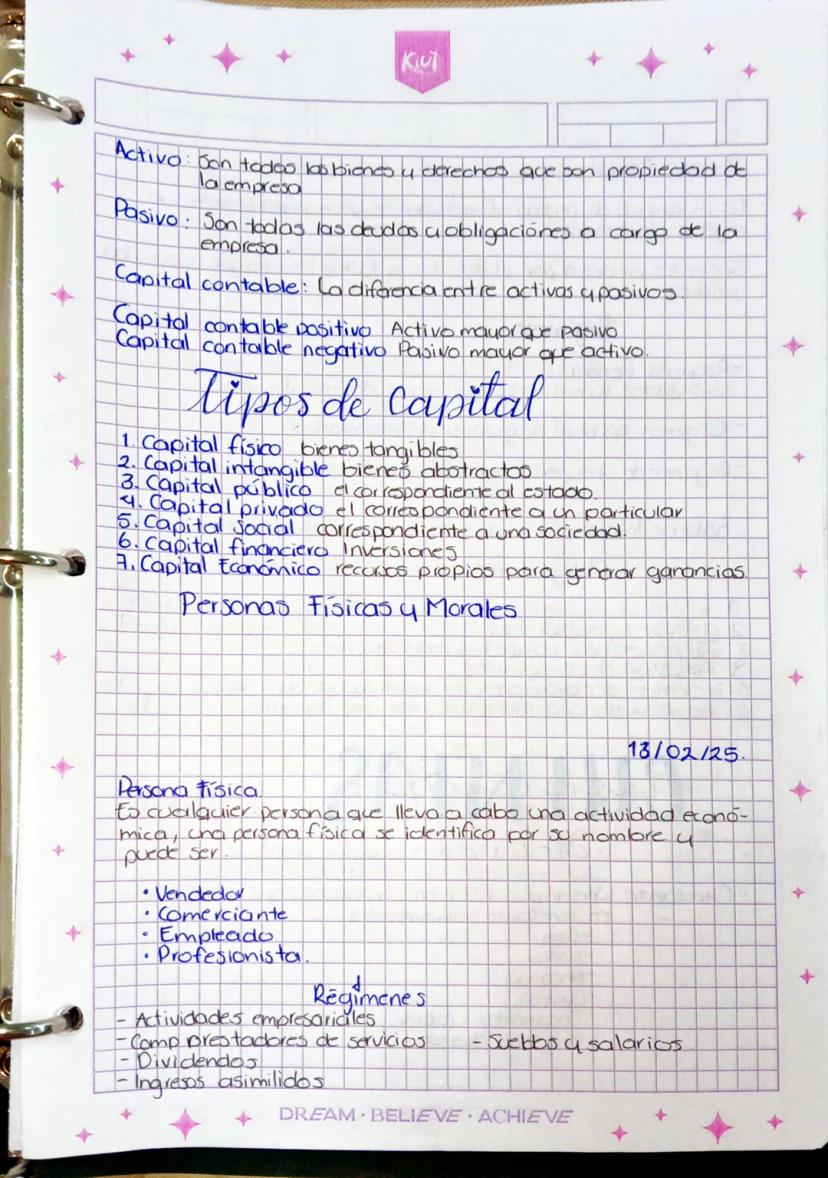 Kiut
Activo: Son todos los bienes y derechos que son propiedad de
la empresa
Pasivo: Son todas las deudas u obligaciónes a cargo de la
empresa.
Capital contable: La diferencia entre activos y pasivos.
Capital contable positivo Activo mayor que pasivo
Capital contable negativo Pasivo mayor que activo.
Tipos de Capital
1. Capital físico bienes tangibles
2. Capital intangible bienes abstractos
3. Capital público el correspondiente al estado.
4. Capital privado el correspondiente a un particular
5. Capital social correspondiente a una sociedad.
6. Capital financiero Inversiones
7. Capital Económico recursos propios para generar ganancias
Personas Físicas y Morales
13/02/25.
Persona física
Es cualquier persona que lleva a cabo una actividad econó-
mica, una persona física se identifica por su nombre y
puede ser.
• Vendedor
• Comerciante
• Empleado
• Profesionista.
Régimenes
- Actividades empresariales
- Comp prestadores de servicios - Sueldos y salarios
- Dividendos
- Ingresos asimilidos
DREAM · BELIEVE · ACHIEVE